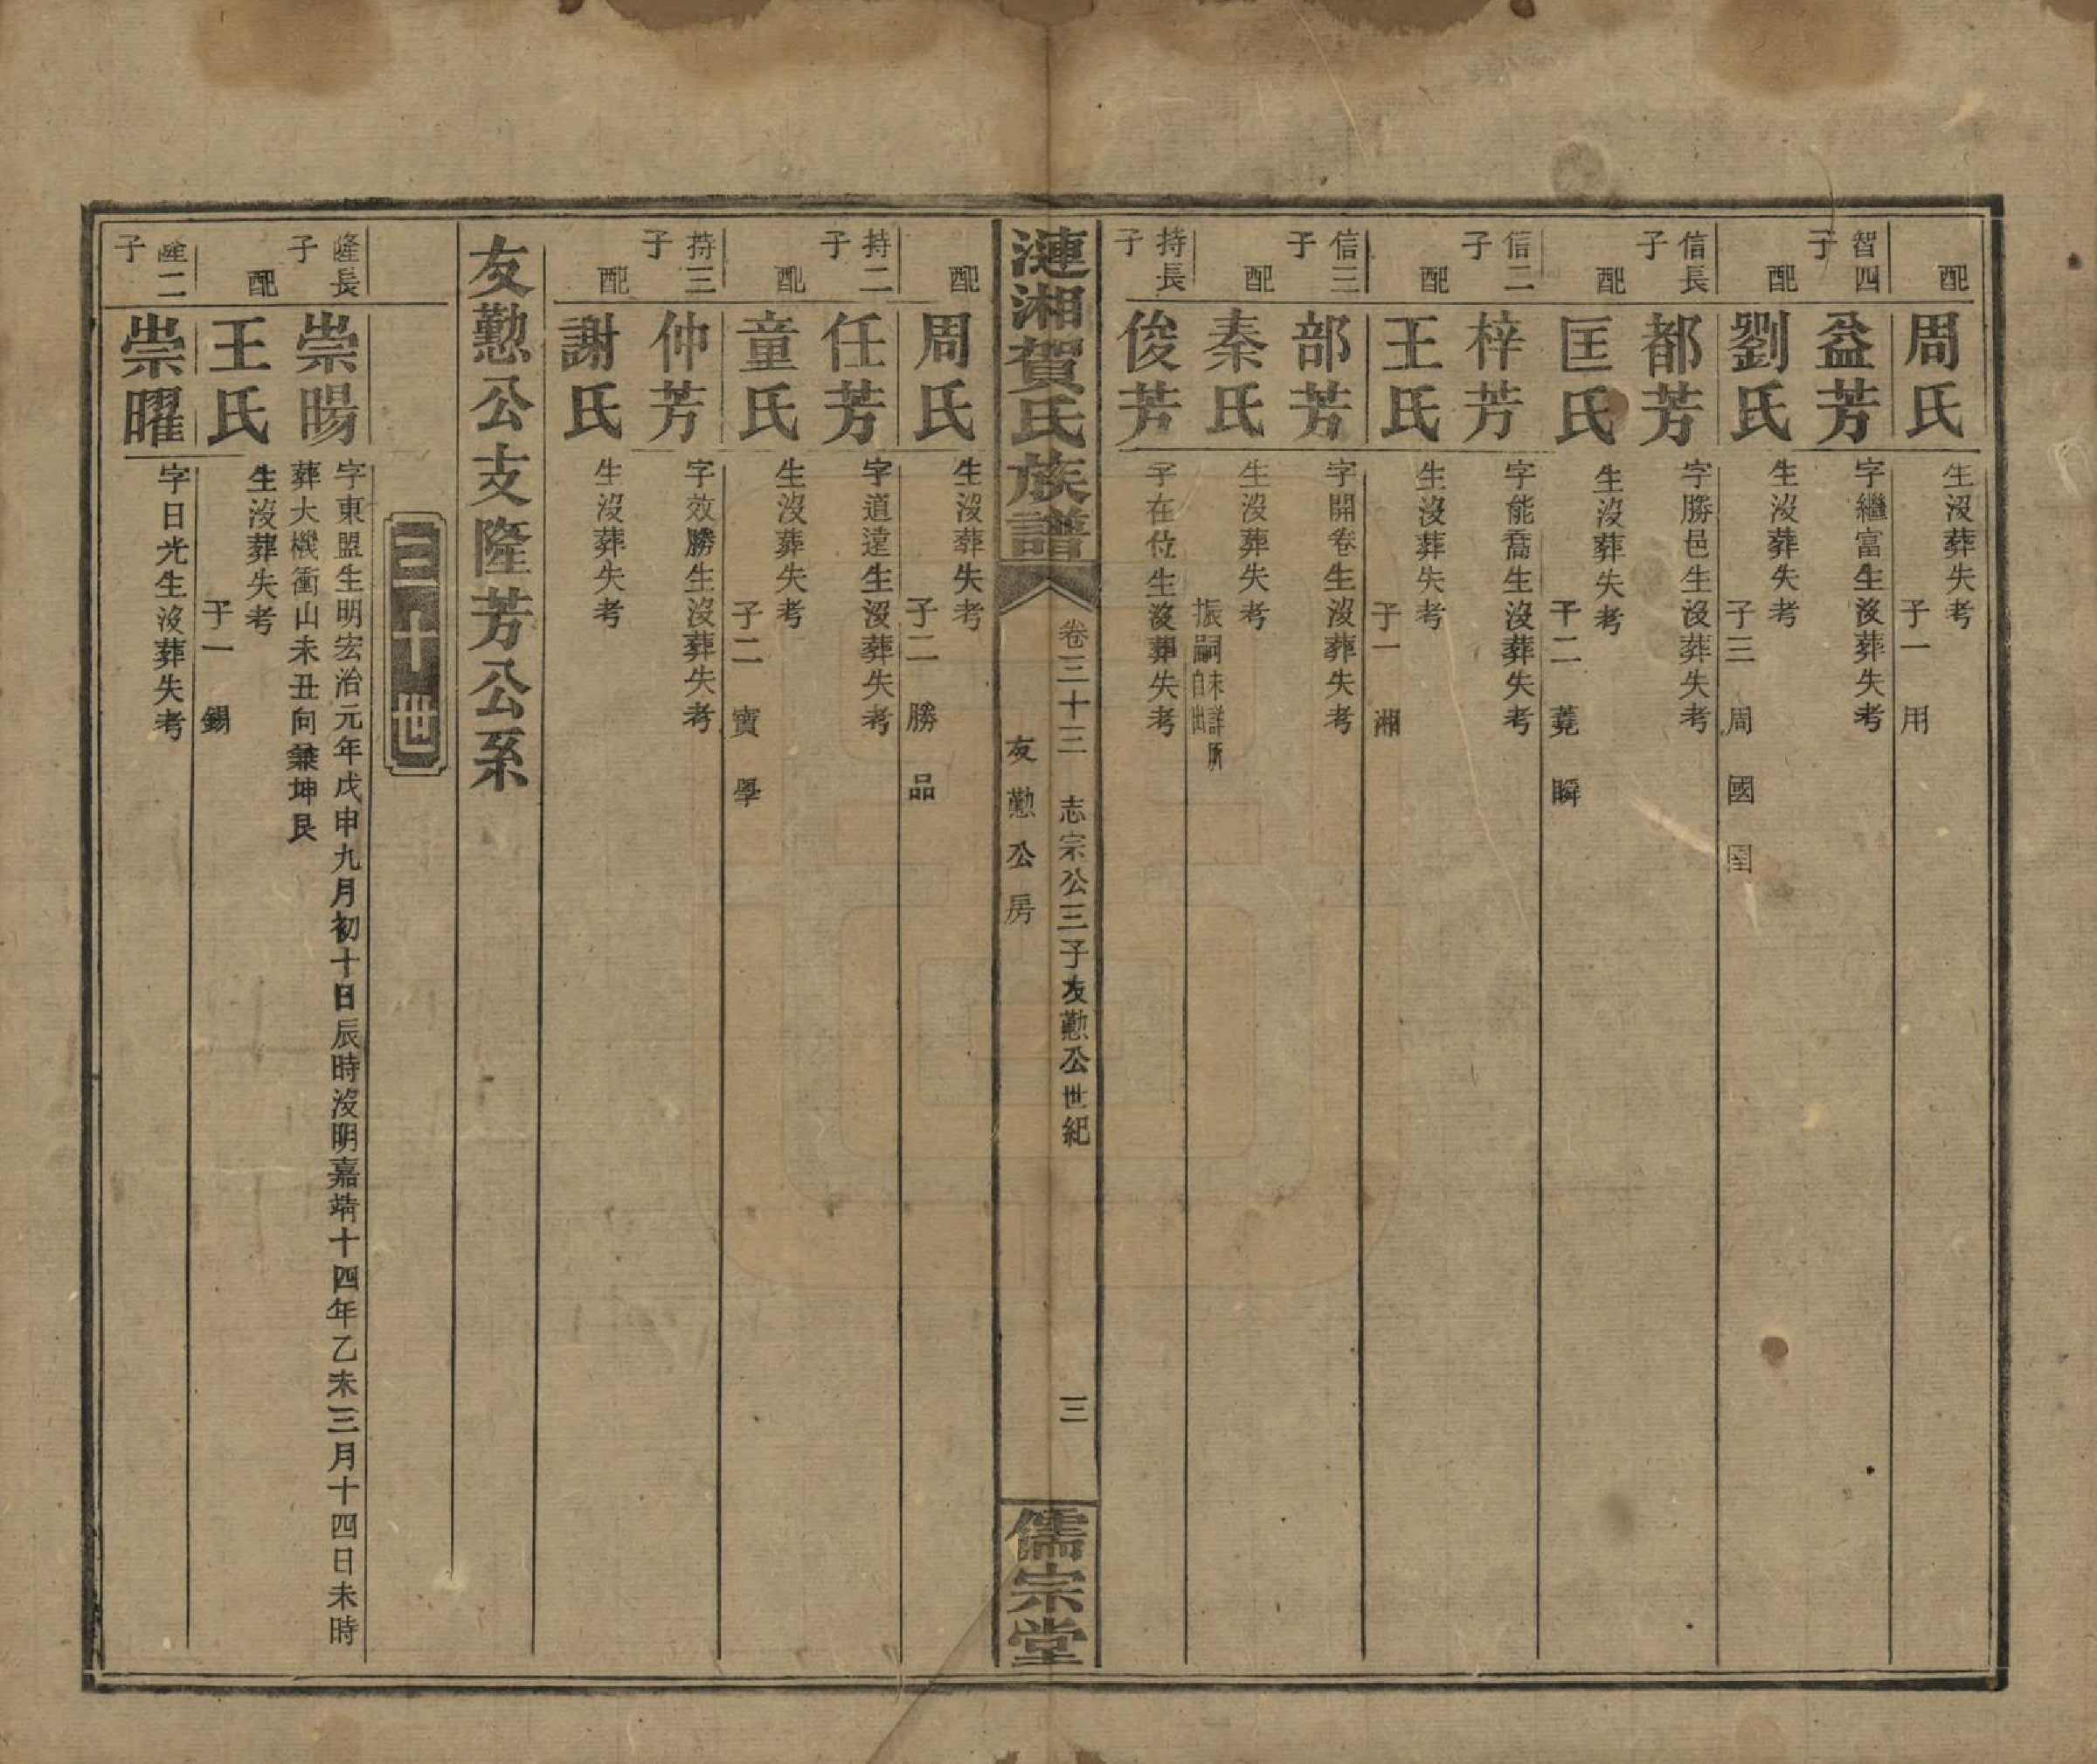 配 周氏 生沒葬失考
子一 用
智四子 益芳 字繼富生沒葬失考
配 劉氏 生沒葬失考
子三 周 國 囯
信長子 都芳 字勝邑生沒葬失考
配 匡氏 生沒葬失考
子二 蕘 瞬
信二子 梓芳 字能喬生沒葬失考
配 王氏 生沒葬失考
子一 湘
信三子 部芳 字開卷生沒葬失考
配 秦氏 生沒葬失考
振嗣未詳所自出
持長子 俊芳 字在位生沒葬失考
漣湘賀氏族譜 卷三十三 志宗公三子友懃公世紀 三 儒宗堂
友懃公房
配 周氏 生沒葬失考
子二 勝 品
持二子 任芳 字道達生沒葬失考
配 童氏 生沒葬失考
子二 寶 學
持三子 仲芳 字效勝生沒葬失考
配 謝氏 生沒葬失考
友懃公支隆芳公系
三十世
隆長子 崇暘 字東盟生明宏治元年戊申九月初十日辰時沒明嘉靖十四年乙未三月十四日未時
葬大機衝山未丑向兼坤艮
配 王氏 生沒葬失考
子一 錫
隆二子 崇曜 字日光生沒葬失考